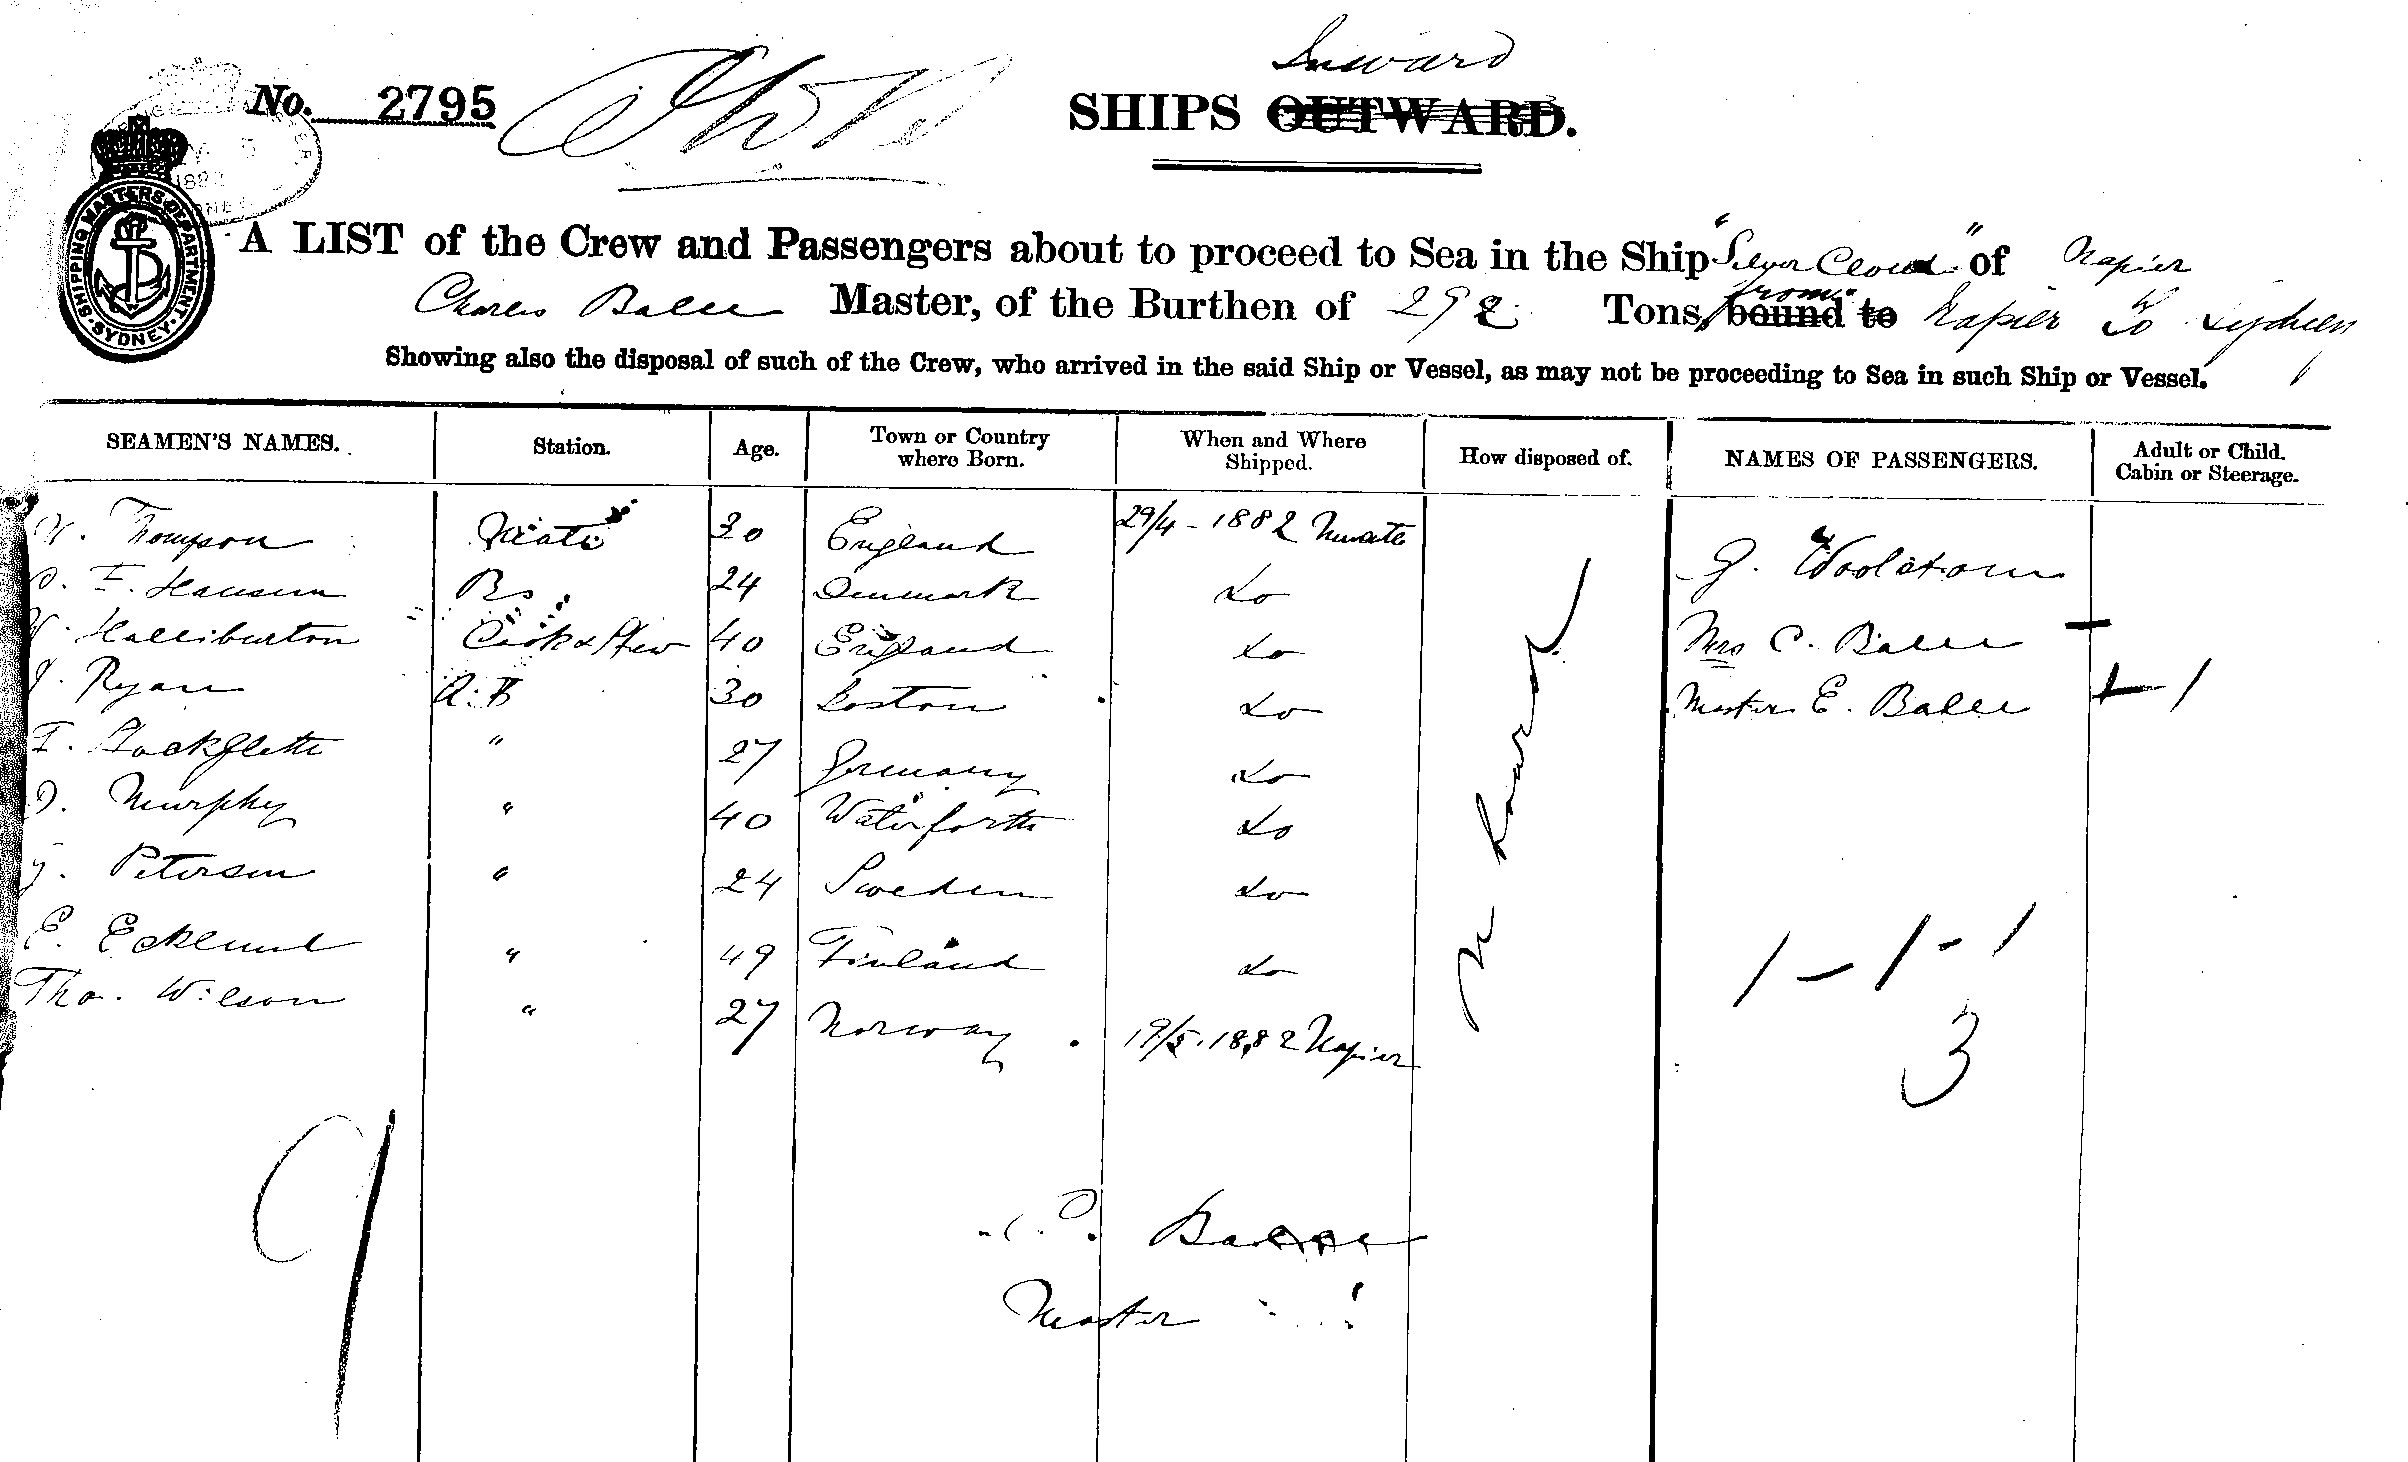 Inward
No. 2795
SHIPS OUTWARD.
SHIPPING MASTERS DEPARTMENT. SYDNEY
A LIST of the Crew and Passengers about to proceed to Sea in the Ship "Silver Cloud" of Napier
Charles Balle Master, of the Burthen of 292 Tons, from bound to Napier to Sydney
Showing also the disposal of such of the Crew, who arrived in the said Ship or Vessel, as may not be proceeding to Sea in such Ship or Vessel.
SEAMEN'S NAMES. Station. Age. Town or Country where Born. When and Where Shipped. How disposed of. NAMES OF PASSENGERS. Adult or Child. Cabin or Steerage.
W. Thompson Mate 30 England 29/4-1882 Newcate J. Woolstom
F. Hansen Bs. 24 Denmark Do
W. Halliburton Cook & Stew 40 England Do Mrs C. Balle
J. Ryan A.B 30 Boston Do Master E. Balle 1
F. " 27 Germany Do
D. Murphy " 40 Waterforth Do
J. Petersen " 24 Sweden Do
E. Ecklund " 49 Finland Do 1 - 1 - 1
Tho. Wilson " 27 Norway 19/5.1882 Napier 3
9
C. Balle
Master